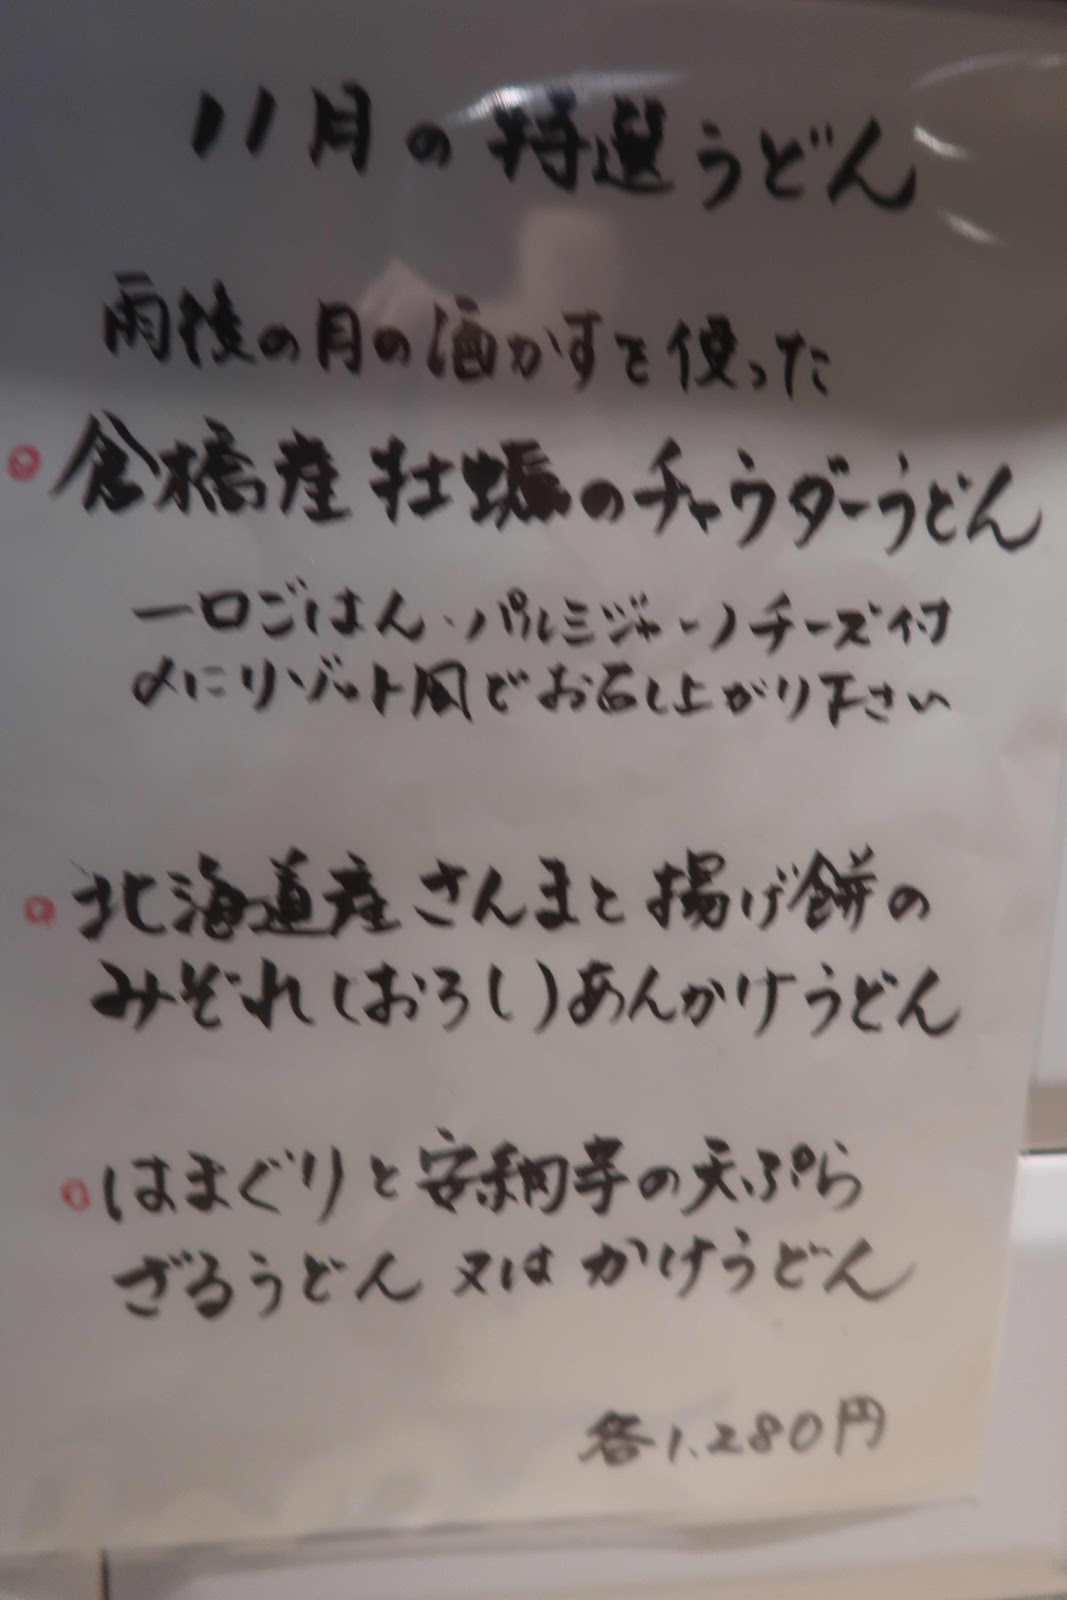 11月の特選うどん
雨後の月の酒かすを使った
倉橋産牡蛎のチャウダーうどん
一口ごはん・パルミジャーノチーズ付
〆にリゾット風でお召し上がり下さい
北海道産さんまと揚げ餅の
みぞれ(おろし)あんかけうどん
はまぐりと安納芋の天ぷら
ざるうどん 又は かけうどん
各1,280円